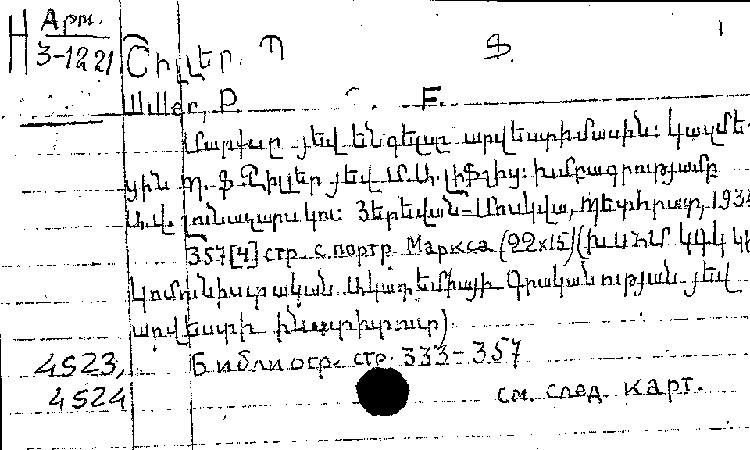 Н Арт.
3-1221
Շիլլեր. Պ Ֆ. 1
Шиллер, Ф. F.
Մարքսը յեվ Ենգելսը արվեստի մասին: Կազմե-
ցին Պ. Ֆ. Շիլլեր յեվ Մ. Ա. Լիֆշից: Խմբագրությամբ
Ա. Վ. Լունաչարսկու: Յերեվան-Մոսկվա, Պետհրատ, 193
357[4] стр. с портр. Маркса (22x15) (ԽՍՀՄ ԿԳԿ
Կոմունիստական Ակադեմիայի Գրականության յեվ
արվեստի ինստիտուտ)
4523, Библиогр. стр. 333-357
4524 см. след. карт.